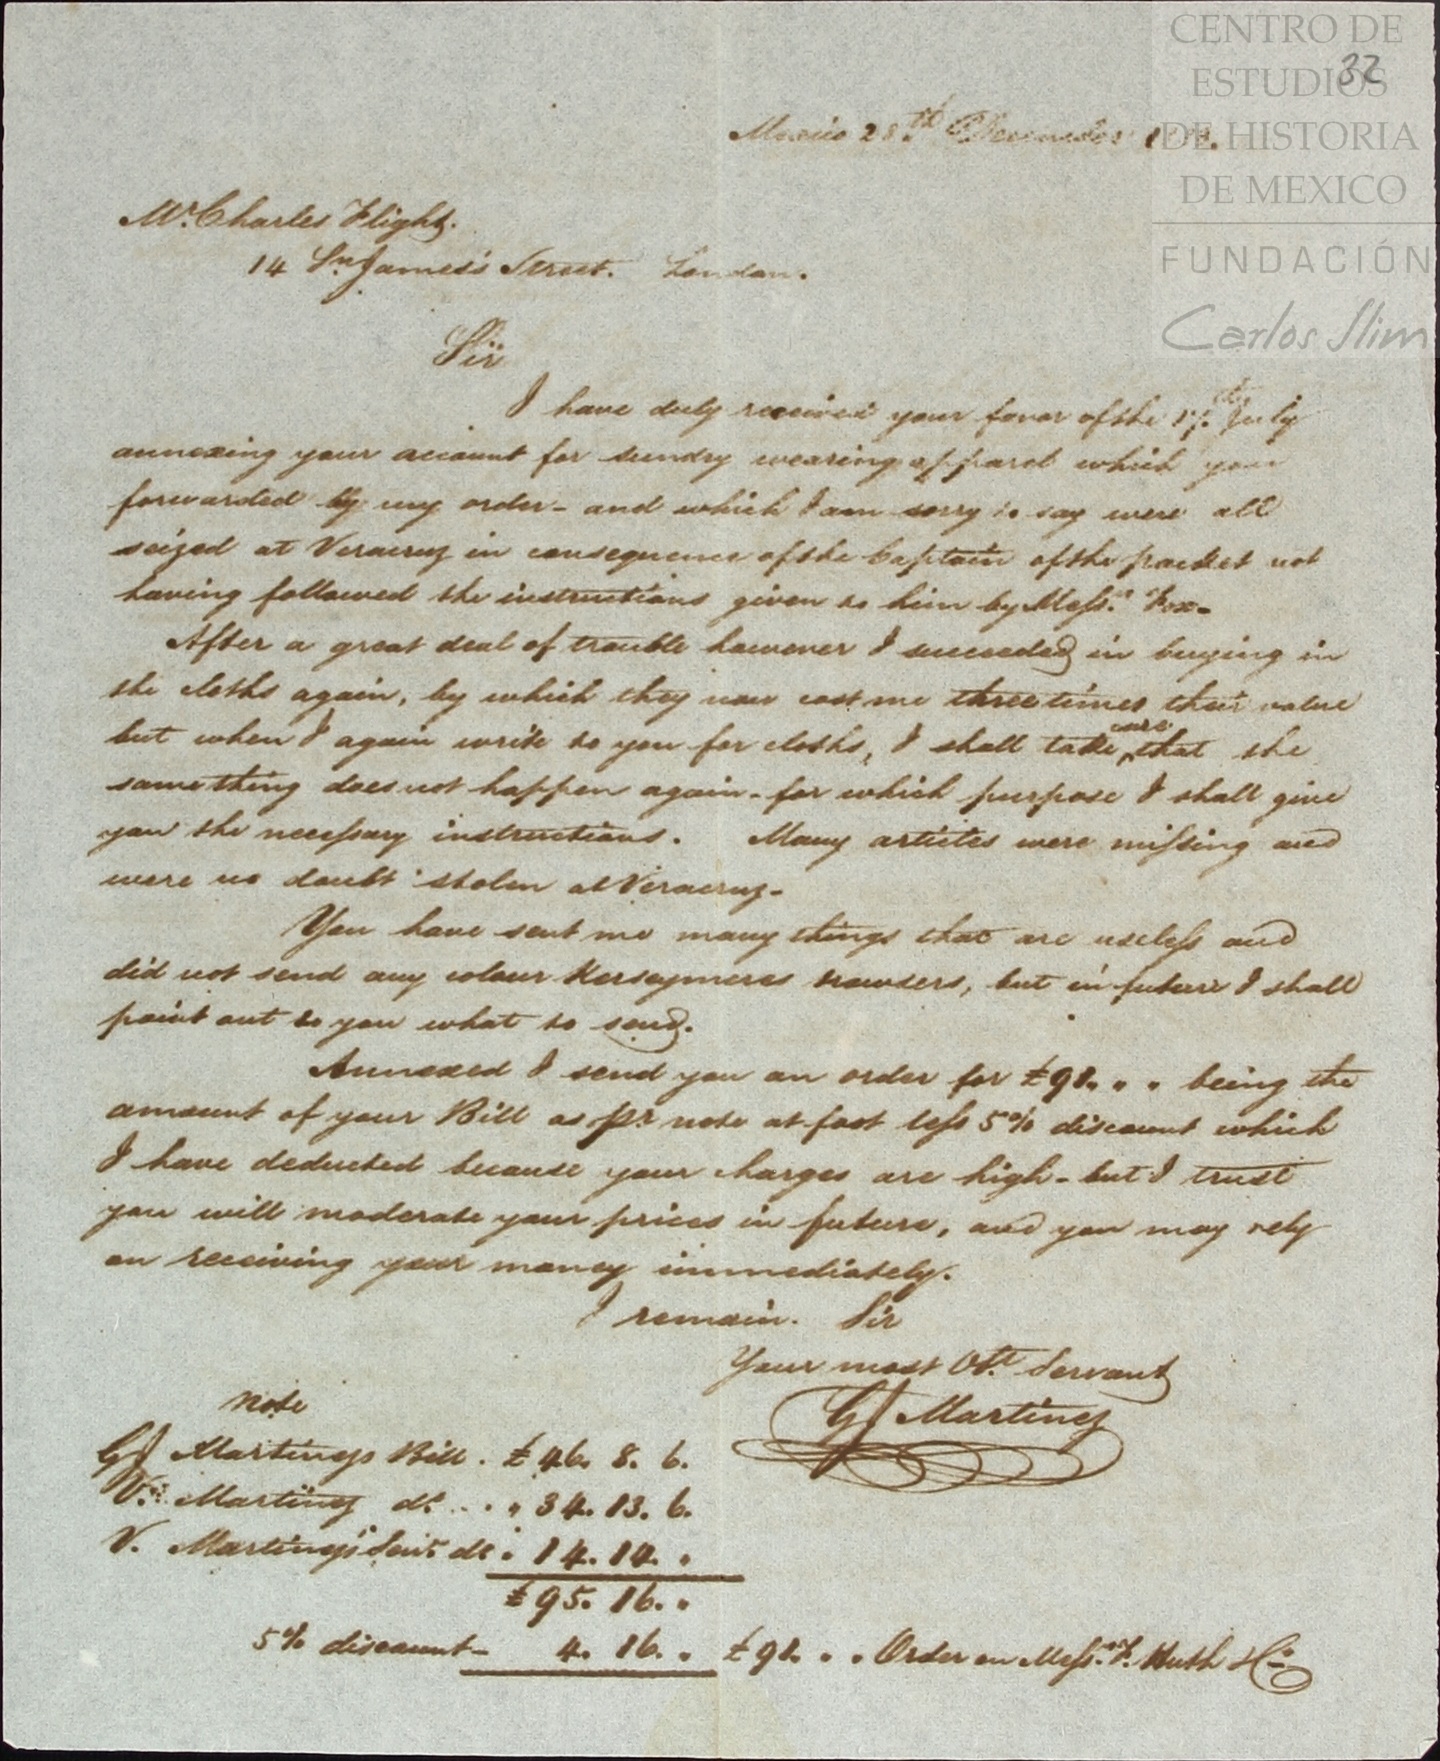 CENTRO DE
ESTUDIOS
DE HISTORIA
DE MEXICO
FUNDACIÓN
Carlos Slim
32
Mexico 28th December
Mr. Charles Flight.
14 St. James's Street. London.
Sir
I have duly received your favor of the 17th July
annexing your account for sundry wearing apparel which you
forwarded by my order - and which I am sorry to say were all
seized at Veracruz in consequence of the Captain of the packet not
having followed the instructions given to him by Messrs. Fox -
After a great deal of trouble however I succeeded in buying in
the cloths again, by which they now cost me three times their value
but when I again write to you for cloths, I shall take care that the
same thing does not happen again - for which purpose I shall give
you the necessary instructions. Many articles were missing and
were no doubt stolen at Veracruz -
You have sent me many things that are useless and
did not send any colour Kerseymeres trowsers, but in future I shall
point out to you what to send.
Annexed I send you an order for £91. „ „ being the
amount of your Bill as pr note at foot less 5% discount which
I have deducted because your charges are high - but I trust
you will moderate your prices in future, and you may rely
on receiving your money immediately.
I remain. Sir
Your most Obt. Servant
GJ Martinez
Note
GJ Martinez's Bill . £46. 8. 6.
Martinez do. . . „ 34. 13. 6.
V. Martinez's Servt. do . 14. 14. „
£95. 16. „
5% discount - 4. 16. „ £91. „ „ Order on Messrs. F. Huth & Co.